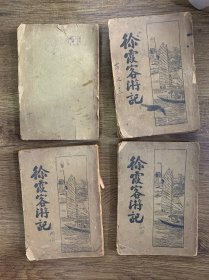 徐霞客游記
徐霞客游記
徐霞客游記